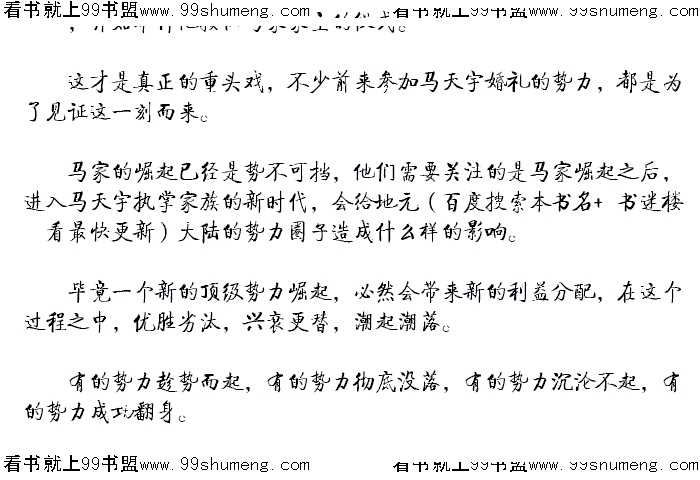 看书就上99书盟www.99shumeng.com 看书就上99书盟www.99shumeng.com
这才是真正的重头戏，不少前来参加马天宇婚礼的势力，都是为
了见证这一刻而来。
马家的崛起已经是势不可挡，他们需要关注的是马家崛起之后，
进入马天宇执掌家族的新时代，会给地元（百度搜索本书名+ 书迷楼
看最快更新）大陆的势力圈子造成什么样的影响。
毕竟一个新的顶级势力崛起，必然会带来新的利益分配，在这个
过程之中，优胜劣汰，兴衰更替，潮起潮落。
有的势力趁势而起，有的势力彻底没落，有的势力沉沦不起，有
的势力成功翻身。
看书就上99书盟www.99shumeng.com 看书就上99书盟www.99shumeng.com